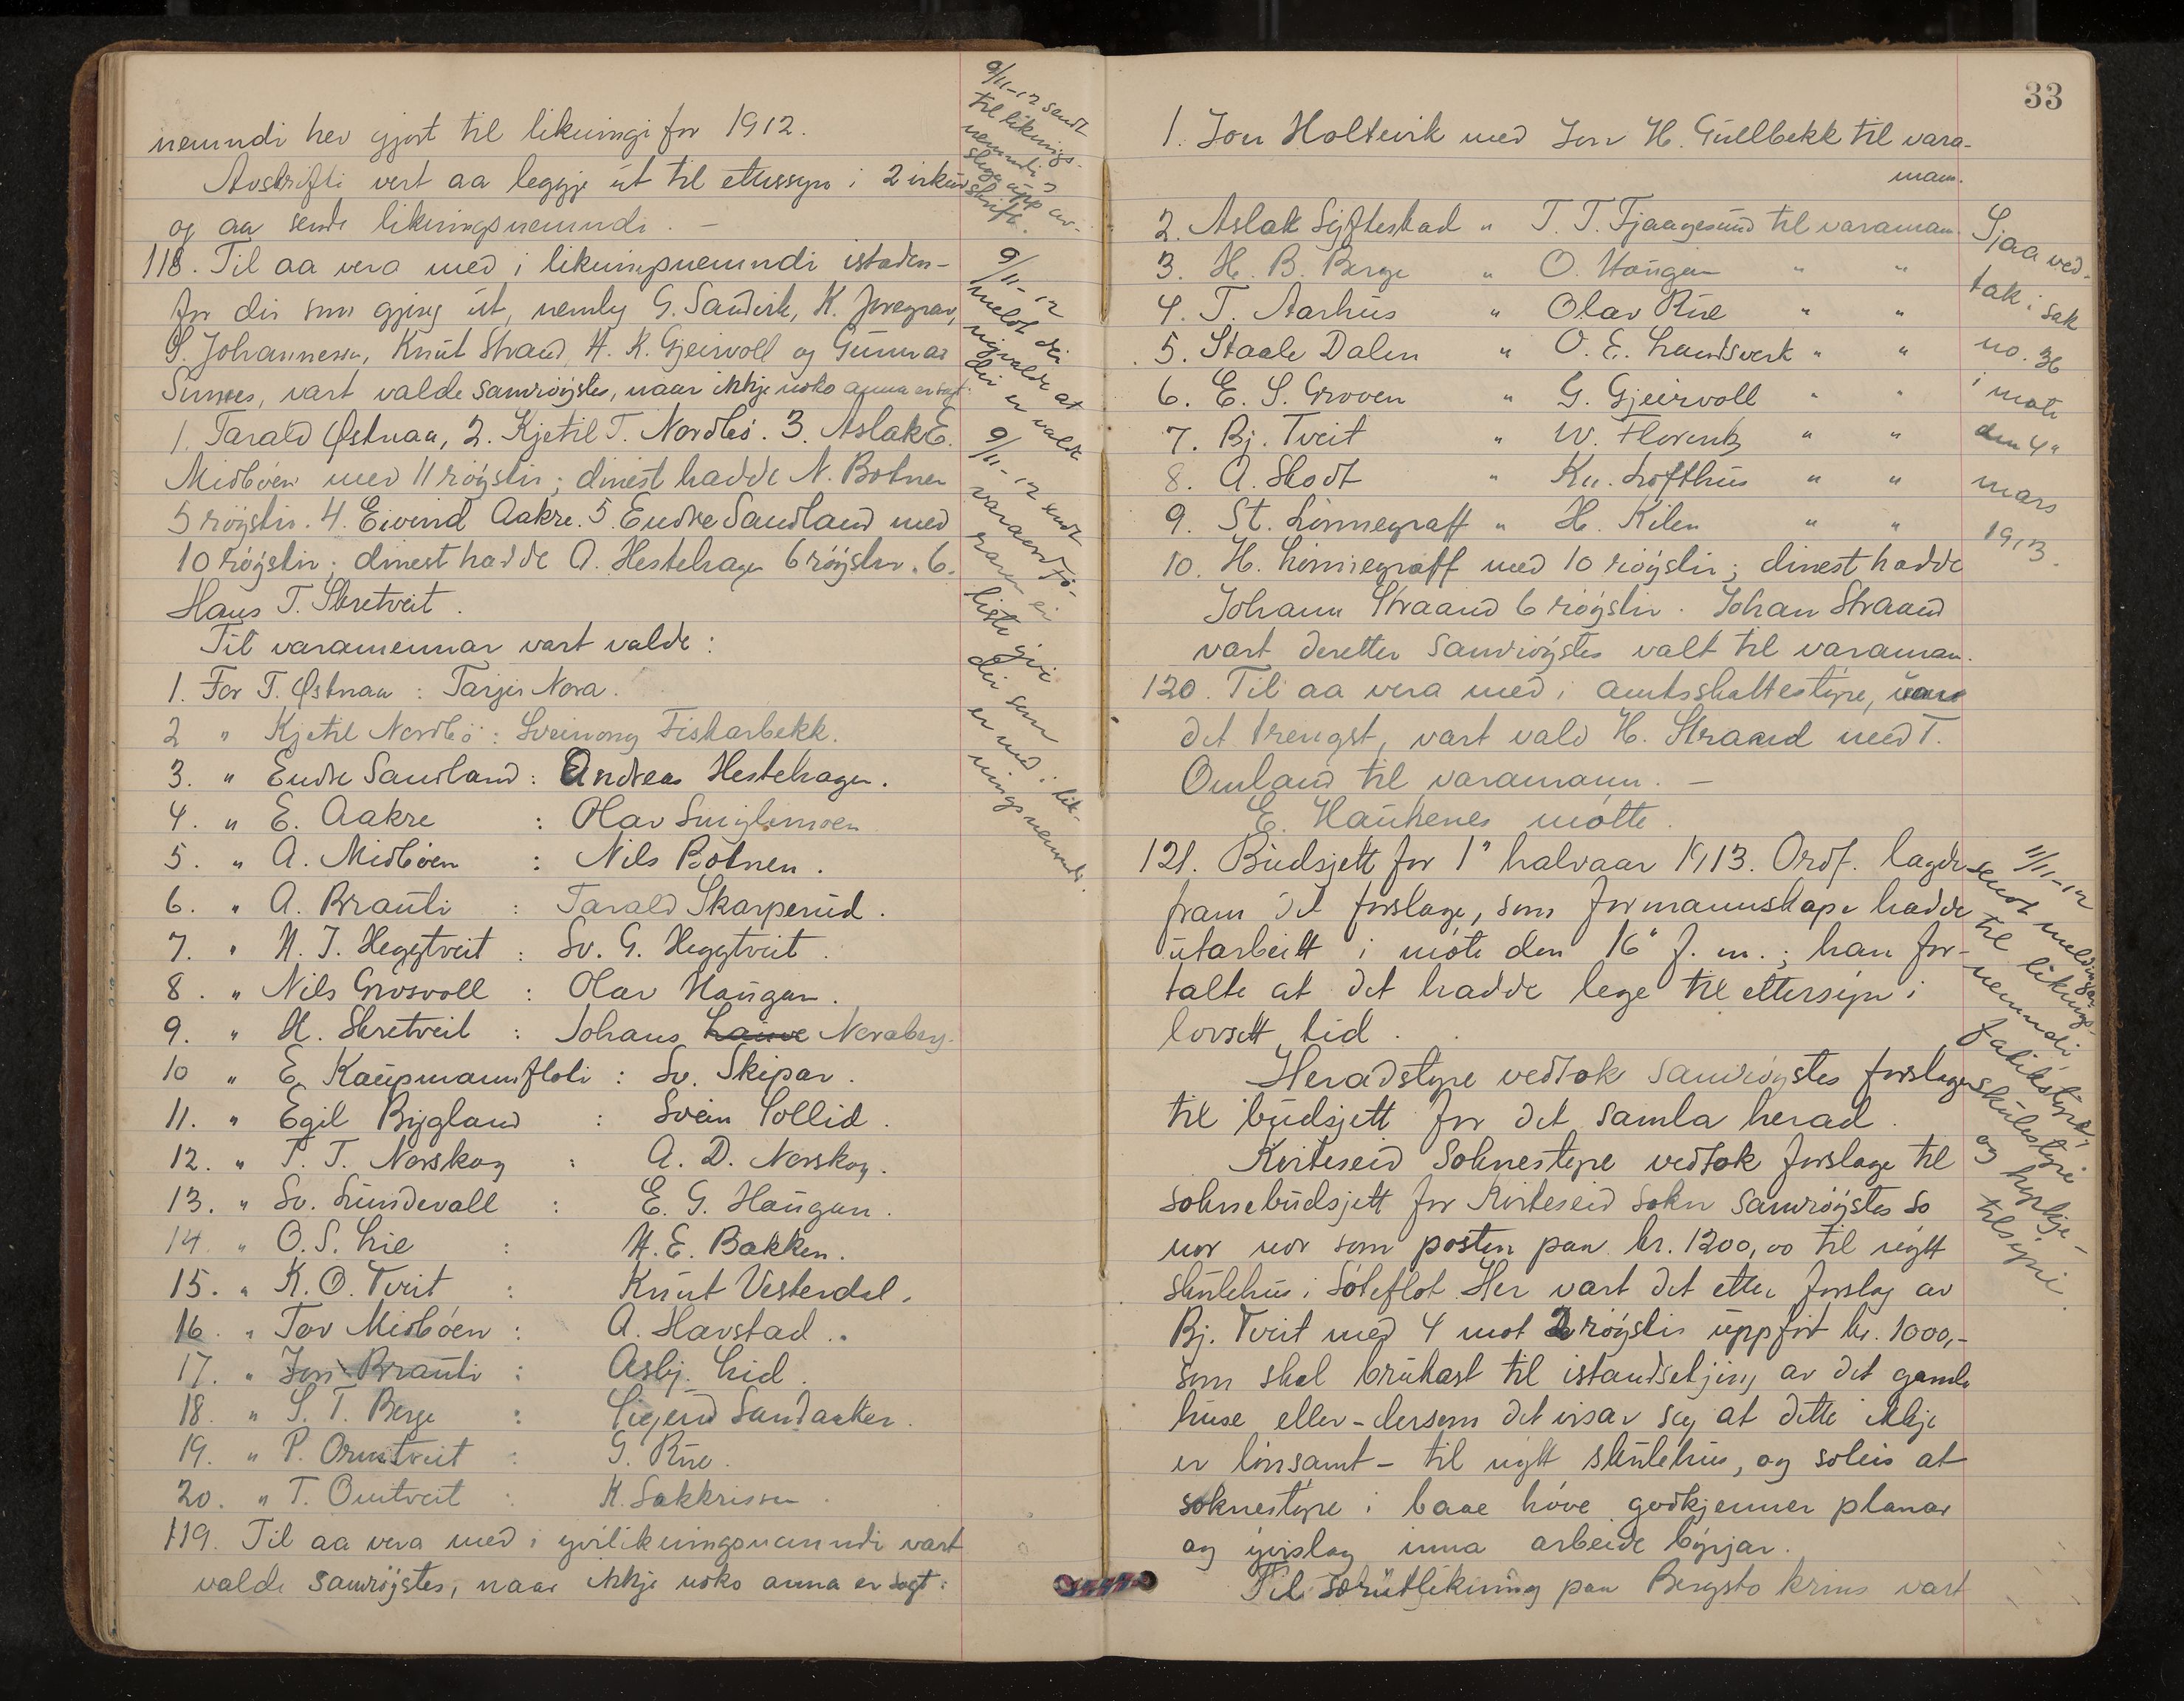 nemndi hev gjort til likningi for 1912.
Avskrifti vert aa leggje út til ettersyn i 2 vikur
og aa sende likningsnemndi. –
118. Til aa vera med i likningsnemndi istaden-
for dei som gjeng út, nemleg G. Sandvik, K.
S. Johannessen, Knút Straand, H. K. Gjeirvoll og Gunnar
vart valde samrøystes, naar ikkje noko anna er sagt:
1. Tarald Østnaa, 2. Kjetil T. Nordbø. 3. Aslak E.
Midbøen med 11 røyster; dinest hadde N. Botnen
5 røyster. 4. Eivind Aakre. 5. Endre Sandland med
10 røyster; dinest hadde A. Hestehagen 6 røyster. 6.
Hans T. Skretveit.
Til varamennar vart valde:
1. For T. Østnaa : Tarjei Nora.
2 " Kjetil Nordbø : Sveinung Fiskarbekk.
3. " Endre Sandland : Andreas Hestehagen.
4. " E. Aakre : Olav
5. " A. Midbøen : Nils Botnen.
6. " A. Brauti : Tarald Skarperud.
7. " H. J. Heggtveit : Sv. G. Heggtveit.
8. " Nils Grosvoll : Olav Haugan.
9. " H. Skretveit : Johans Noraberg.
10 " E. Kaupmannsfloti : Sv. Skipar.
11. " Egil Bygland : Svein Sollid.
12. " T. T. Norskog : A. D. Norskog.
13. " Sv. Lundevall : E. G. Haugan.
14. " O. S. Lie : H. E. Bakken.
15. " K. O. Tveit : Knút Vesterdal.
16. " Tov Midbøen : A. Havstad.
17. " Jon Brauti : Asbj. Lid.
18. " S. T. Berge : Sigurd Sandaaker.
19. " P. Ormtveit : G. Rúe.
20. " T. Omtveit : K. Sakkrissen.
119. Til aa vera med i yvirlikningsnemndi vart
valde samrøystes, naar ikkje noko anna er sagt:
9/11-12 sendt
til liknings-
nemndi
av-
skrift.
9/11-12
meldt dei
nyvalde at
dei er valde
9/11-12 sendt
liste yvi
dei som
er med i lik-
ningsnemndi.
33
1. Jon Holtevik med Jon H. Gullbekk til vara-
mann.
2. Aslak Syftestad " T. T. Fjaagesund til varamann.
3. H. B. Berge " O. Haugan " "
4. T. Aarhus " Olav Rúe " "
5. Staale Dalen " O. E. Landsverk " "
6. E. S. Groven " G. Gjeirvoll " "
7. Bj. Tveit " W. Florentz " "
8. A. Skodt " Kn. Lofthus " "
9. St. Lønnegraff " H. Kilen " "
10. H. Lønnegraff med 10 røyster; dinest hadde
Johann Straand 6 røyster. Johan Straand
vart deretter samrøystes valt til varamann.
120. Til aa vera med i amtsskattestyre, um
det trengst, vart vald H. Straand med T.
Omland til varamann. –
E. Haukenes møtte.
121. Budsjett for 1" halvaar 1913. Ordf. lagde
fram det forslage, som formannskape hadde
utarbeitt i møte den 16" f. m.; han for-
talte at det hadde lege til ettersyn i
lovsett tid.
Heradstyre vedtok samrøystes forslage
til budsjett for det samla herad.
Kviteseid Soknestyre vedtok forslage til
soknebudsjett for Kviteseid sokn samrøystes so
nær som posten paa kr. 1200,00 til nytt
skulehus i Søteflot. Her vart det etter forslag av
Bj. Tveit med 4 mot 2 røyster uppført kr. 1000,-
som skal brukast til istandsetjing av det gamle
huse eller – dersom det visar seg at dette ikkje
er lønsamt – til nytt skulehus, og soleis at
soknestyre i baae høve godkjenner planar
og yvislag inna arbeide byrjar.
Til særutlikning paa Bergsto krins vart
Sjaa ved-
tak i sak
no. 36
i møte
den 4"
mars
1913.
11/11-12
sendt meldingar
til liknings-
nemndi,
fatikstyre,
skulestyre
og kyrkje-
tilsyni.